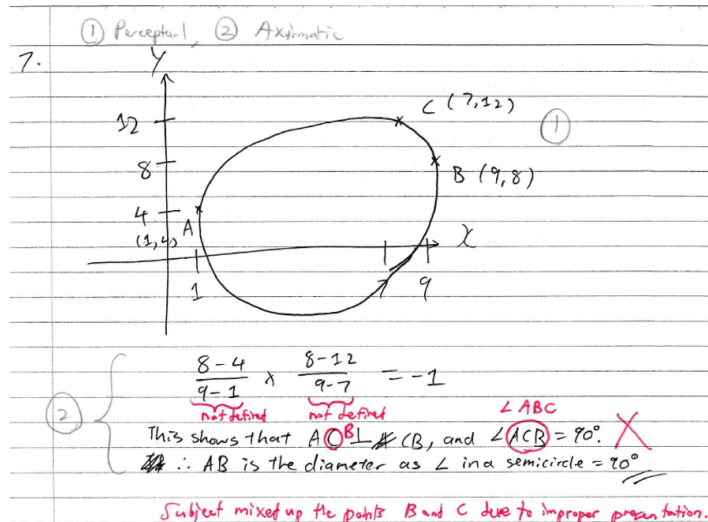 ① Perceptual, ② Axiomatic
7.
Y
C (7,12)
12
①
8
B (9,8)
4
A
(1,4)
X
1
7
9
②
8-4 / 9-1 × 8-12 / 9-7 = -1
not defined not defined ∠ABC
This shows that AC B ⊥ CB, and ∠ACB = 90°. X
∴ AB is the diameter as ∠ in a semicircle = 90°
Subject mixed up the points B and C due to improper presentation.